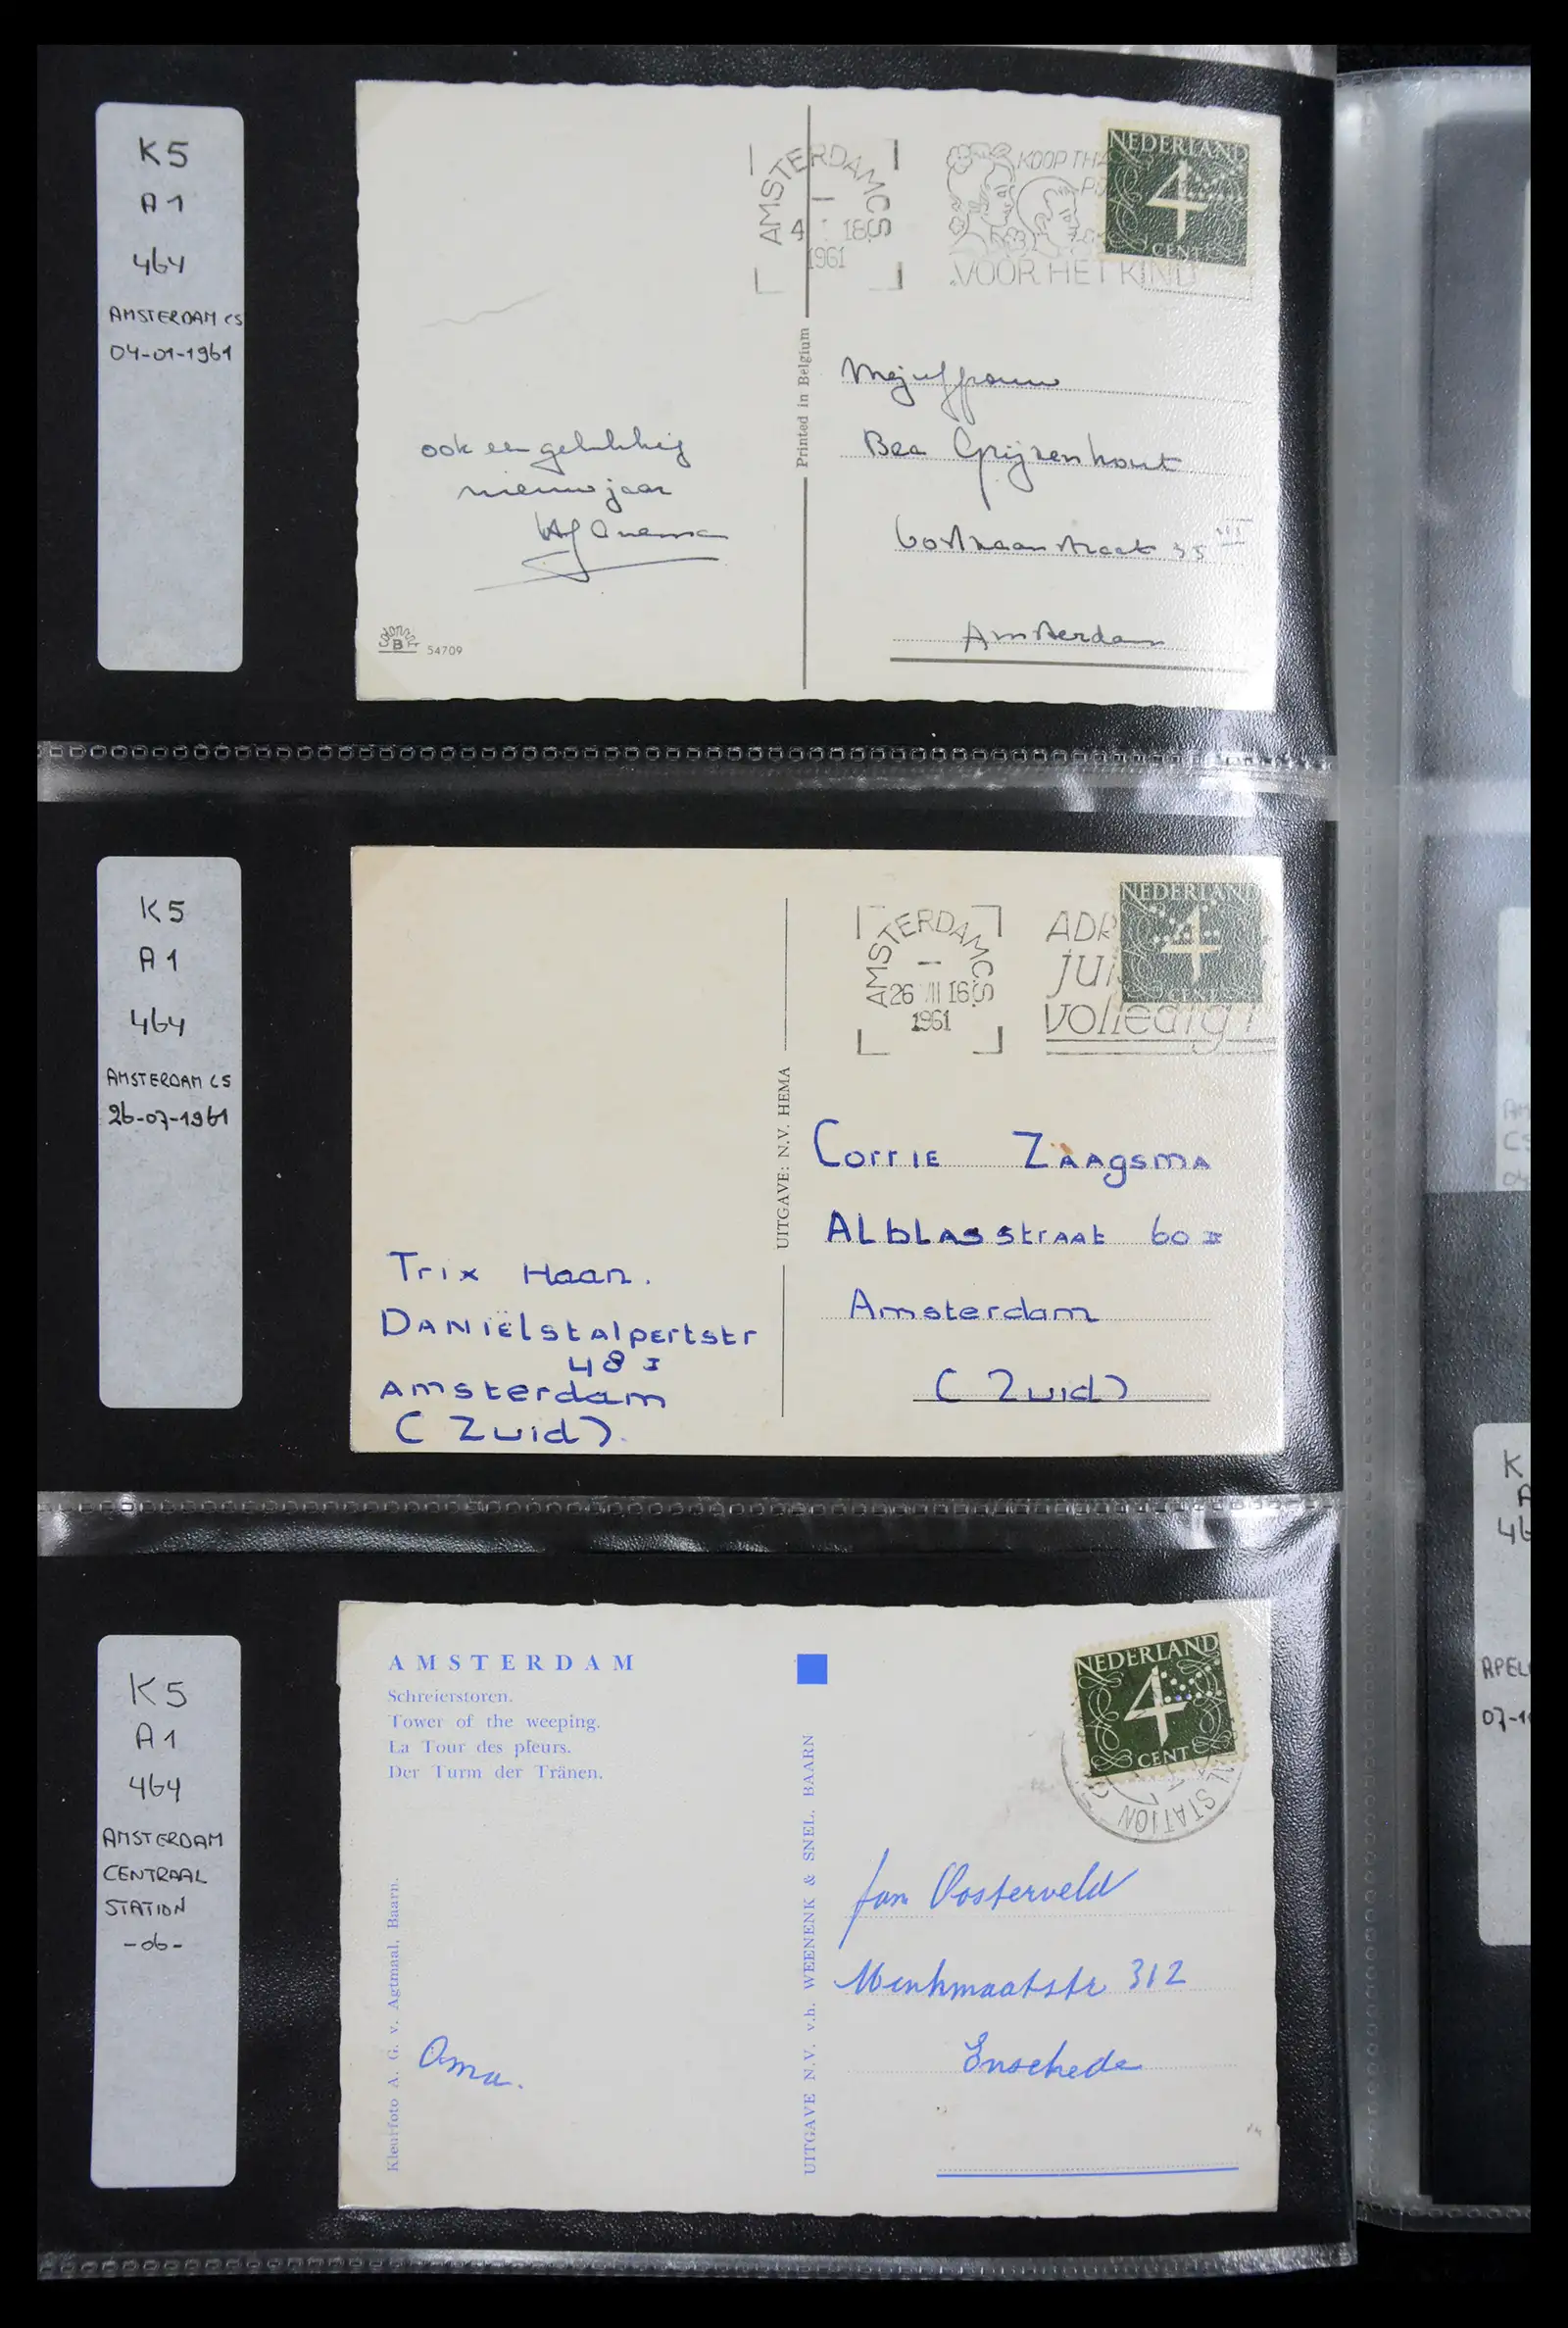 K5
A1
464
AMSTERDAM CS
04-01-1961
AMSTERDAM CS
4 I 18
1961
KOOP
VOOR HET KIND
NEDERLAND
4
CENT
Printed in Belgium
ook een gelukkig
nieuwjaar
B 54709
Mejuffrouw
Bea Grijzenhout
35 III
Amsterdam
K5
A1
464
AMSTERDAM CS
26-07-1961
AMSTERDAM C.S.
26 VII 16
1961
ADR
jui
volledig!
NEDERLAND
4
CENT
UITGAVE: N.V. HEMA
Trix Haan.
Daniëlstalpertstr
48 I
Amsterdam
(Zuid).
Corrie Zaagsma
Alblasstraat 60 I
Amsterdam
(Zuid)
K5
A1
464
AMSTERDAM
CENTRAAL
STATION
-06-
AMSTERDAM
Schreierstoren.
Tower of the weeping.
La Tour des pleurs.
Der Turm der Tränen.
Kleurfoto A. G. v. Agtmaal, Baarn.
UITGAVE N.V. v.h. WEENENK & SNEL, BAARN
NEDERLAND
4
CENT
AL STATION
Oma.
Jan Oosterveld
Menkmaatstr 312
Enschede
K
A
46
APEL
07-1